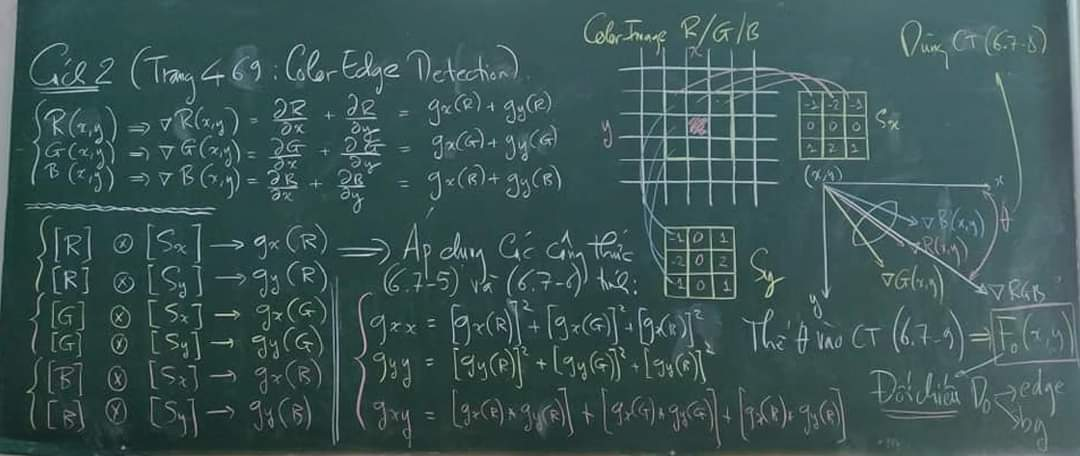 Cách 2 (Trang 469: Color Edge Detection).
R(x,y) ⇒ ∇R(x,y) = ∂R/∂x + ∂R/∂y = gx(R) + gy(R)
G(x,y) ⇒ ∇G(x,y) = ∂G/∂x + ∂G/∂y = gx(G) + gy(G)
B(x,y) ⇒ ∇B(x,y) = ∂B/∂x + ∂B/∂y = gx(B) + gy(B)
[R] ⊗ [Sx] → gx(R)
[R] ⊗ [Sy] → gy(R)
[G] ⊗ [Sx] → gx(G)
[G] ⊗ [Sy] → gy(G)
[B] ⊗ [Sx] → gx(B)
[B] ⊗ [Sy] → gy(B)
⇒ Áp dụng Các công thức
(6.7-5) và (6.7-6) tính:
gxx = [gx(R)]² + [gx(G)]² + [gx(B)]²
gyy = [gy(R)]² + [gy(G)]² + [gy(B)]²
gxy = [gx(R)*gy(R)] + [gx(G)*gy(G)] + [gx(B)*gy(B)]
Color Image R/G/B
x
y
-1 -2 -1
0 0 0
1 2 1
Sx
-1 0 1
-2 0 2
-1 0 1
Sy
Dùng CT (6.7-8)
(x,y)
x
θ
∇B(x,y)
∇R(x,y)
∇G(x,y)
∇RGB
y
Thế θ vào CT (6.7-9) ⇒ Fθ(x,y)
Đối chiếu D₀ → edge
→ bg